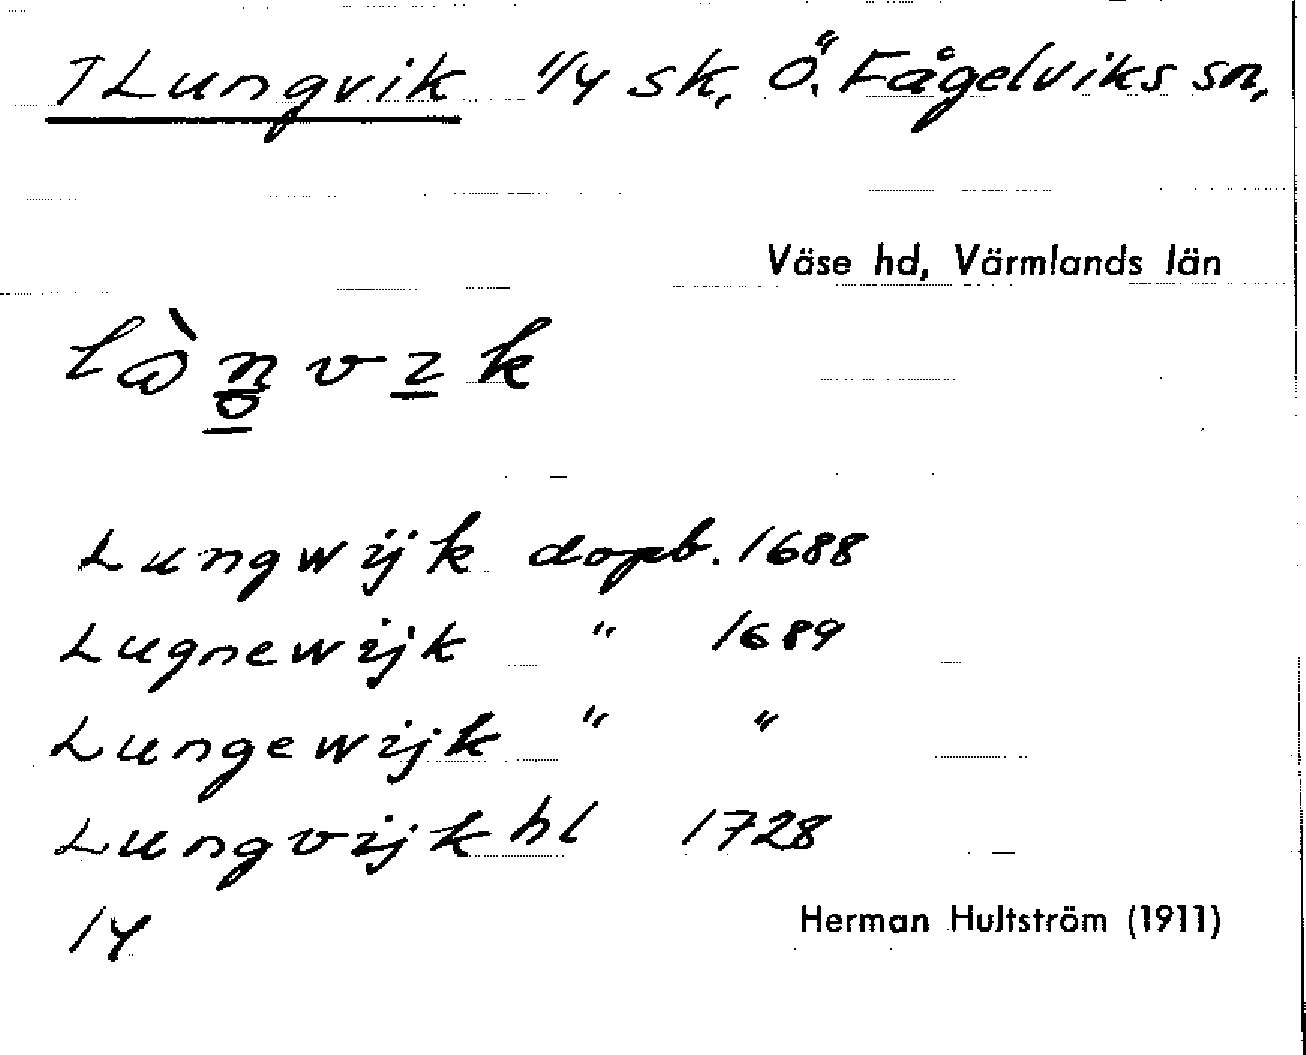 1 Lungvik 1/4 sk, Ö. Fågelviks sn,
Väse hd, Värmlands län
Lungwijk dopb. 1688
Lugnewijk " 1689
Lungewijk " "
Lungvijk hl 1728
14
Herman Hultström (1911)